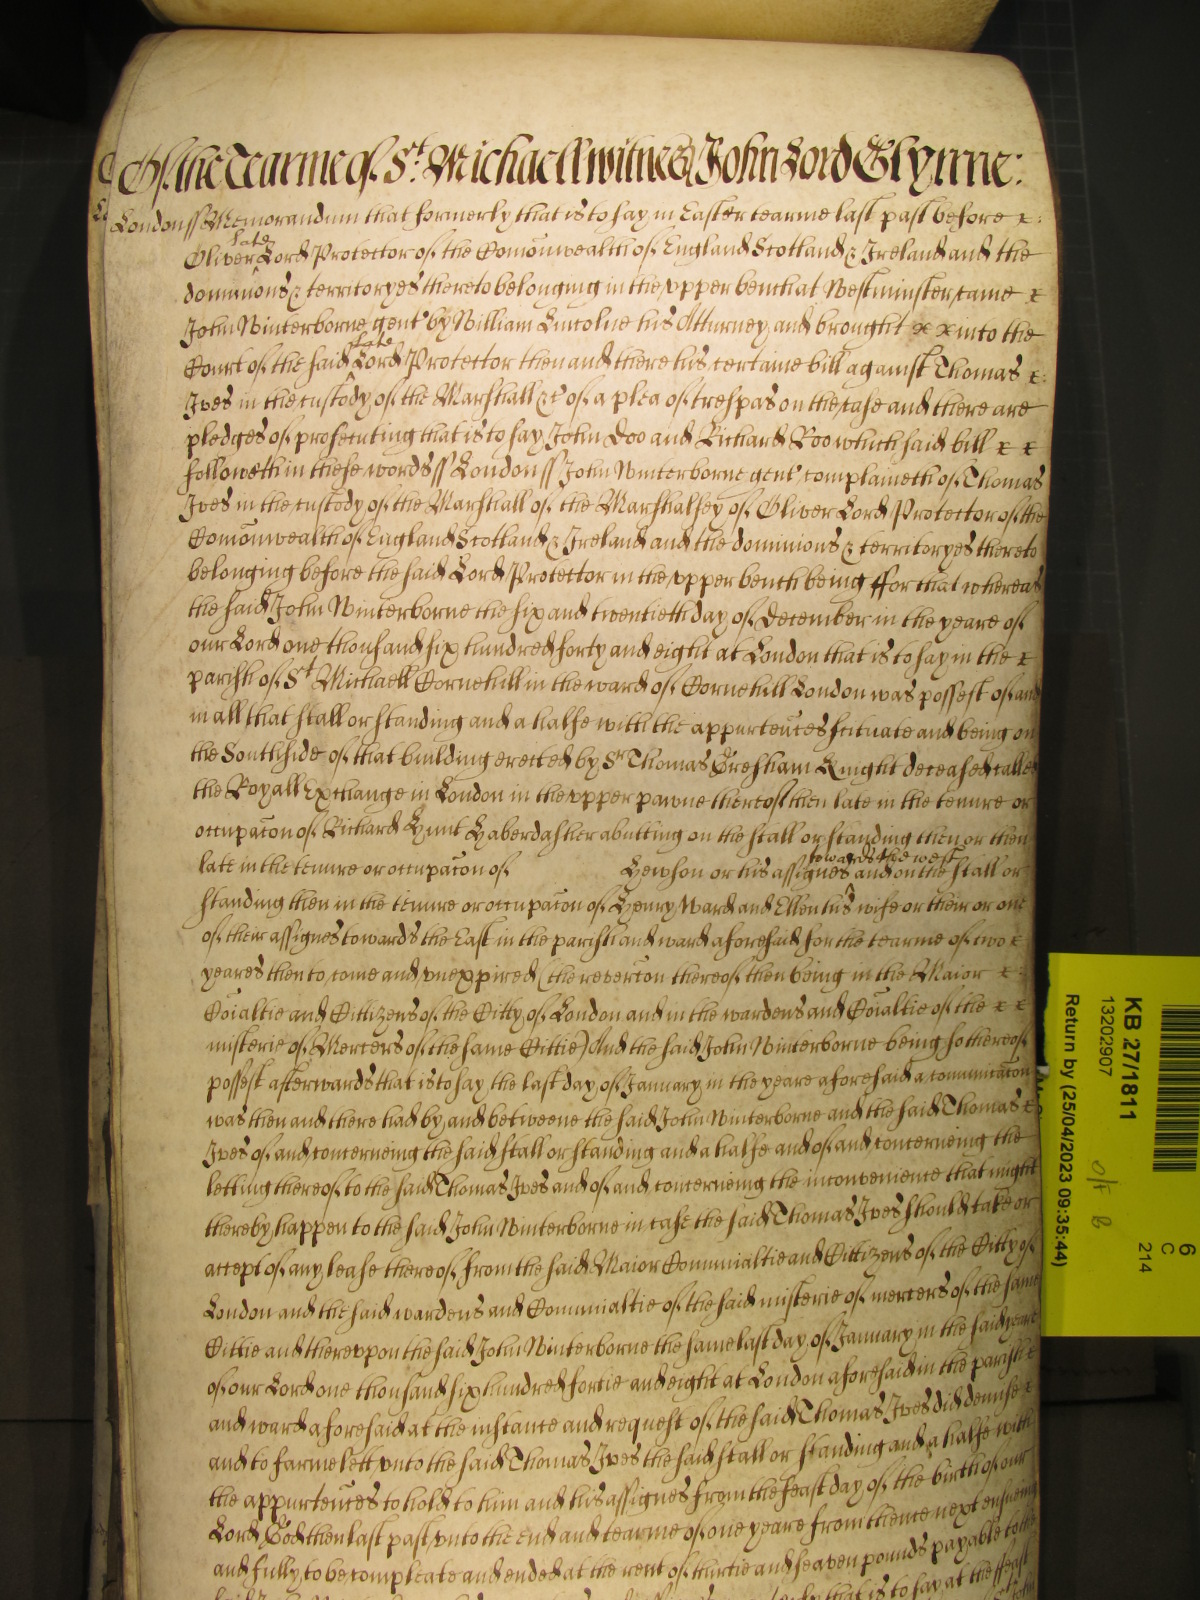 Of the Tearme of St. Michaell witnes John Lord Glynne:
London ss Memorandum that formerly that is to say in Easter tearme last past before
Oliver late Lord Protector of the Comōnwealth of England Scotland & Ireland and the
dominions & territoryes thereto belonging in the vpper bench at Westminster came
John Winterborne gent' by William Lincolne his Atturney and brought into the
Court of the said late Lord Protector then and there his certaine bill against Thomas
Ives in the custody of the Marshall &c of a plea of trespas on the case and there are
pledges of prosecuting that is to say John Doo and Richard Roo which said bill
followeth in these words ss London ss John Winterborne gent' complaineth of Thomas
Ives in the custody of the Marshall of the Marshalsey of Oliver Lord Protector of the
Comōnwealth of England Scotland & Ireland and the dominions & territoryes thereto
belonging before the said Lord Protector in the vpper bench being ffor that whereas
the said John Winterborne the six and twentieth day of December in the yeare of
our Lord one thousand six hundred forty and eight at London that is to say in the
parish of St Michaell Cornehill in the ward of Cornehill London was possest of and
in all that stall or standing and a halfe with the appurteñces scituate and being on
the Southside of that building erected by Sr Thomas Gresham Knight deceased called
the Royall Exchange in London in the vpper pawne thereof then late in the tenure or
occupac̄on of Richard Hunt Haberdasher abutting on the stall or standing then or then
late in the tenure or occupac̄on of Hewson or his assignes towards the west and on the stall or
standing then in the tenure or occupac̄on of Henry Ward and Ellen his wife or their or one
of their assignes towards the East in the parish and ward aforesaid for the tearme of two
yeares then to come and vnexpired (the reverc̄on thereof then being in the Maior
Cōialtie and Cittizens of the Citty of London and in the wardens and Cōialtie of the
misterie of Mercers of the same Cittie) And the said John Winterborne being so thereof
possest afterwards that is to say the last day of January in the yeare aforesaid a comunicac̄on
was then and there had by and betweene the said John Winterborne and the said Thomas
Ives of and concerneing the said stall or standing and a halfe and of and concerneing the
letting thereof to the said Thomas Ives and of and concerneing the inconvenience that might
thereby happen to the said John Winterborne in case the said Thomas Ives should take or
accept of any lease thereof from the said Maior Comunialtie and Cittizens of the Citty of
London and the said wardens and Comunialtie of the said misterie of mercers of the same
Cittie and therevpon the said John Winterborne the same last day of January in the said yeare
of our Lord one thousand six hundred fortie and eight at London aforesaid in the parish
and ward aforesaid at the instance and request of the said Thomas Ives did demise
and to farme lett vnto the said Thomas Ives the said stall or standing and a halfe with
the appurteñces to hold to him and his assignes from the feast day of the birth of our
Lord God then last past vnto the end and tearme of one yeare from thence next ensueing
and fully to be compleate and ended at the rent of thirtie and seaven pounds payable to the
that is to say at the ffeast
KB 27/1811
13202907
Return by (25/04/2023 09:35:44)
O/F B
6
C
214